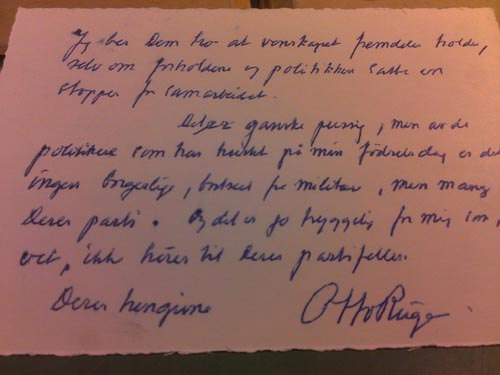 Jeg ber Dem tro at vennskapet fremdeles holder,
selv om forholdene og politikken satte en
stopper for samarbeidet.
Det er ganske pussig, men av de
politikere som har husket på min födselsdag er det
ingen borgerlige, bortsett fra militære, men mange
Deres parti. Og det er jo hyggelig for mig som,
vet, ikke hörer til Deres partifeller.
Deres hengivne
Otto Ruge